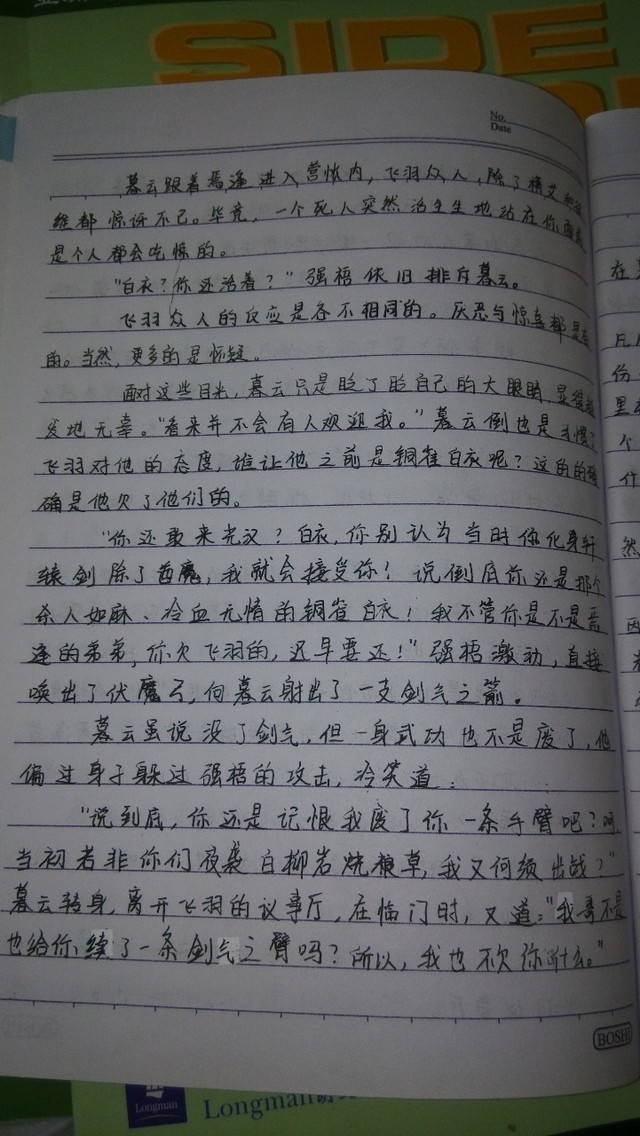 SIDE
No.
Date
暮云跟着焉逢进入营帐内，飞羽众人，除了横艾和徒
维都惊讶不已。毕竟，一个死人突然活生生地站在你面前
是个人都会吃惊的。
"白衣？你还活着？"强梧依旧排斥暮云。
飞羽众人的反应是各不相同的。厌恶与惊喜都是有
的。当然，更多的是怀疑。
面对这些目光，暮云只是眨了眨自己的大眼睛，显得越
发地无辜。"看来并不会有人欢迎我。"暮云倒也是习惯了
飞羽对他的态度，谁让他之前是铜雀白衣呢？这的的确
确是他欠了他们的。
"你还敢来蜀汉？白衣，你别认为当时你化身轩
辕剑除了酋魔，我就会接受你！说到底你还是那个
杀人如麻、冷血无情的铜雀白衣！我不管你是不是焉
逢的弟弟，你欠飞羽的，迟早要还！"强梧激动，直接
唤出了伏魔弓，向暮云射出了一支剑气之箭。
暮云虽说没了剑气，但一身武功也不是废了，他
偏过身子躲过强梧的攻击，冷笑道：
"说到底，你还是记恨我废了你一条手臂吧？
当初若非你们夜袭白柳岩烧粮草，我又何须出战？"
暮云转身，离开飞羽的议事厅，在临门时，又道："我哥不是
也给你续了一条剑气之臂吗？所以，我也不欠你什么。"
BOSHI
Longman
Longman
在
凡
份
里
个
什
然